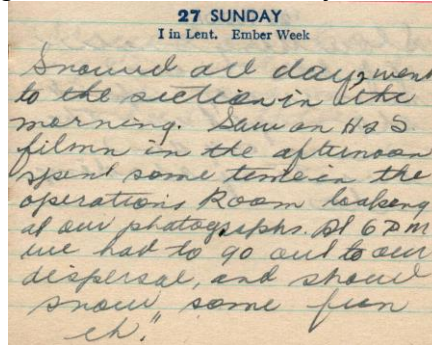 27 SUNDAY
I in Lent. Ember Week
Snowed all day, went
to the section in the
morning. Saw an H & S
filmn in the afternoon
spent some time in the
operations Room looking
at our photographs. At 6 PM
we had to go out to our
dispersal, and shovel
snow some fun
eh."